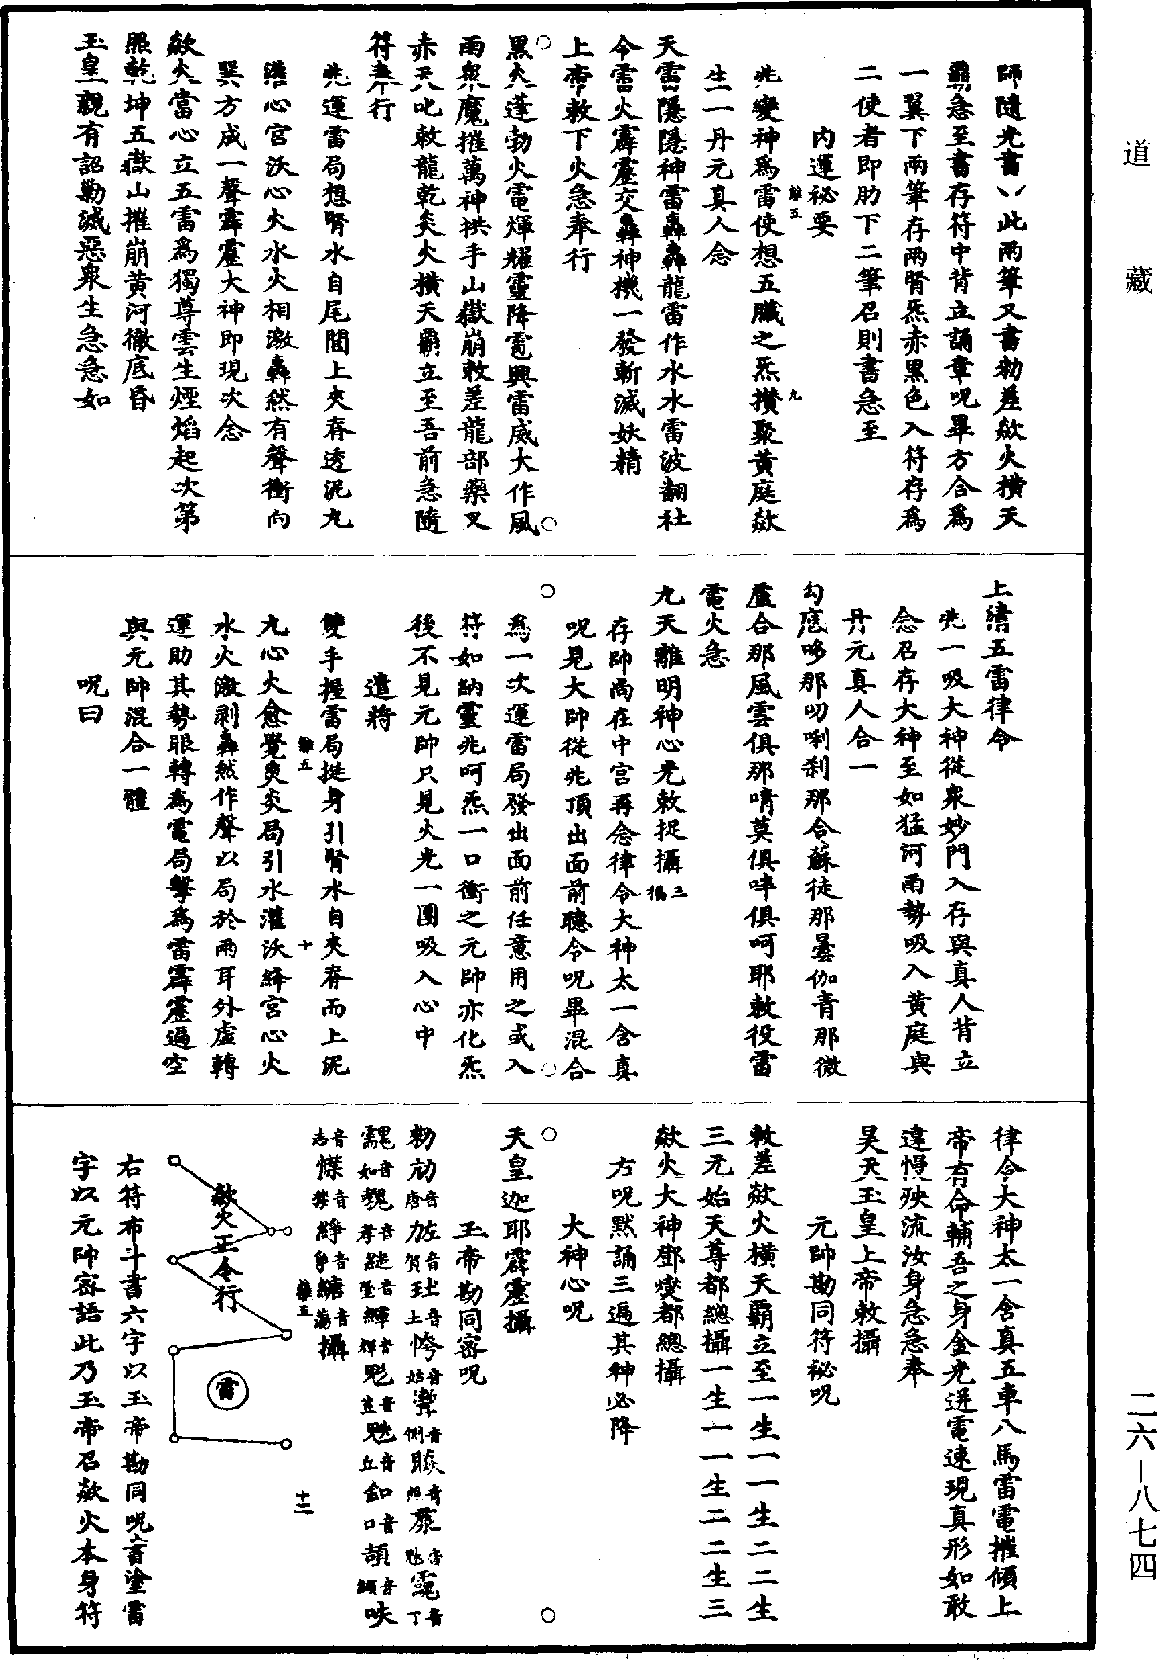 師隨光書乀此兩筆又書勑差歘火橫天
霸急至書存符中背立誦章呪畢方合爲
一翼下兩筆存兩腎炁赤黑色入符存爲
二使者即肋下二筆召則書急至
內運祕要
兆變神爲雷使想五臟之炁攅聚黃庭歘
生一丹元真人念
天雷隱隱神雷轟轟龍雷作水水雷波翻社
令雷火霹靂交轟神機一發斬滅妖精
上帝敕下火急奉行
黑犬蓬勃火電煇耀靈降雹興雷威大作風
雨衆魔摧萬神拱手山嶽崩敕差龍部藥叉
赤天叱敕龍乾炎火橫天霸立至吾前急隨
符奉行
兆運雷局想腎水自尾閭上夾脊透泥丸
灌心宮沃心火水火相激轟然有聲衝向
巽方成一聲霹靂大神即現次念
歘火當心立五雷爲獨尊雲生煙焰起次第
照乾坤五嶽山摧崩黃河徹底昏
玉皇親有詔勦滅惡衆生急急如
上清五雷律令
兆一吸大神從衆妙門入存與真人背立
念召存大神至如猛河雨勢吸入黃庭與
丹元真人合一
勾底哆那叨唎剎那合蘇徒那曇伽青那微
蘆合那風雲俱那啃莫俱吽俱呵耶敕役雷
電火急
九天離明神心光敕捉攝三徧
存帥尚在中宮再念律令大神太一含真
呪見大帥從兆頂出面前聽令呪畢混合
爲一次運雷局發出面前任意用之或入
符如納靈兆呵炁一口衝之元帥亦化炁
後不見元帥只見火光一團吸入心中
遣將
雙手握雷局挺身引腎水自夾脊而上泥
丸心火愈覺臾炎局引水灌沃絳宮心火
水火激剥轟然作聲以局於兩耳外虛轉
運助其勢眼轉爲電局擊爲雷霹靂遍空
與元帥混合一體
呪曰
律令大神太一含真五車八馬雷電摧傾上
帝有命輔吾之身金光迸電速現真形如敢
違慢殃流汝身急急奉
昊天玉皇上帝敕攝
元帥勘同符祕呪
敕差歘火橫天霸立至一生一一生二二生
三元始天尊都總攝一生一一生二二生三
歘火大神鄧燮都總攝
右呪默誦三遍其神必降
大神心呪
天皇迦耶霹靂攝
玉帝勘同密呪
右符布斗書六字以玉帝勘同呪音塗雷
字以元帥密語此乃玉帝召歘火本身符
歘火正令行
雷
道藏
二六—八七四